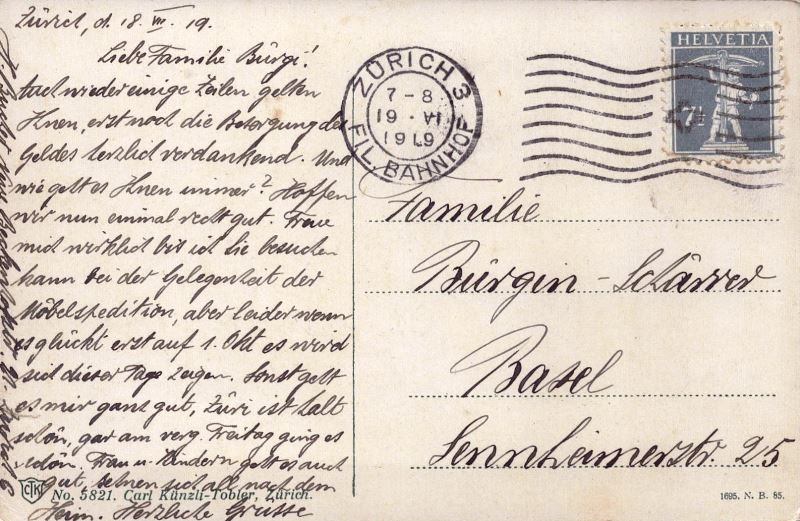 Zürich, d. 18. VI. 19.
Liebe Familie Bürgi!
Auch wieder einige Zeilen gelten
Ihnen, erst noch die Besorgung des
Geldes herzlich verdankend. Und
wie geht es Ihnen immer? Hoffen
wir nun einmal recht gut. Freue
mich wirklich bis ich Sie besuchen
kann bei der Gelegenheit der
Möbelspedition, aber leider wenn
es glückt erst auf 1. Okt es wird
sich dieser Tage zeigen. Sonst geht
es mir ganz gut, Züri ist halt
schön, gar am verg. Freitag ging es
schön. Frau u. Kindern geht es auch
gut, sehnen sich all nach dem
Heim. Herzliche Grüsse
ZÜRICH 3
7-8
19 · VI
1919
FIL. BAHNHOF
HELVETIA
7½
Familie
Bürgin-Schärrer
Basel
Sennheimerstr. 25
CKTZ
No. 5821. Carl Künzli-Tobler, Zürich.
1695. N. B. 85.